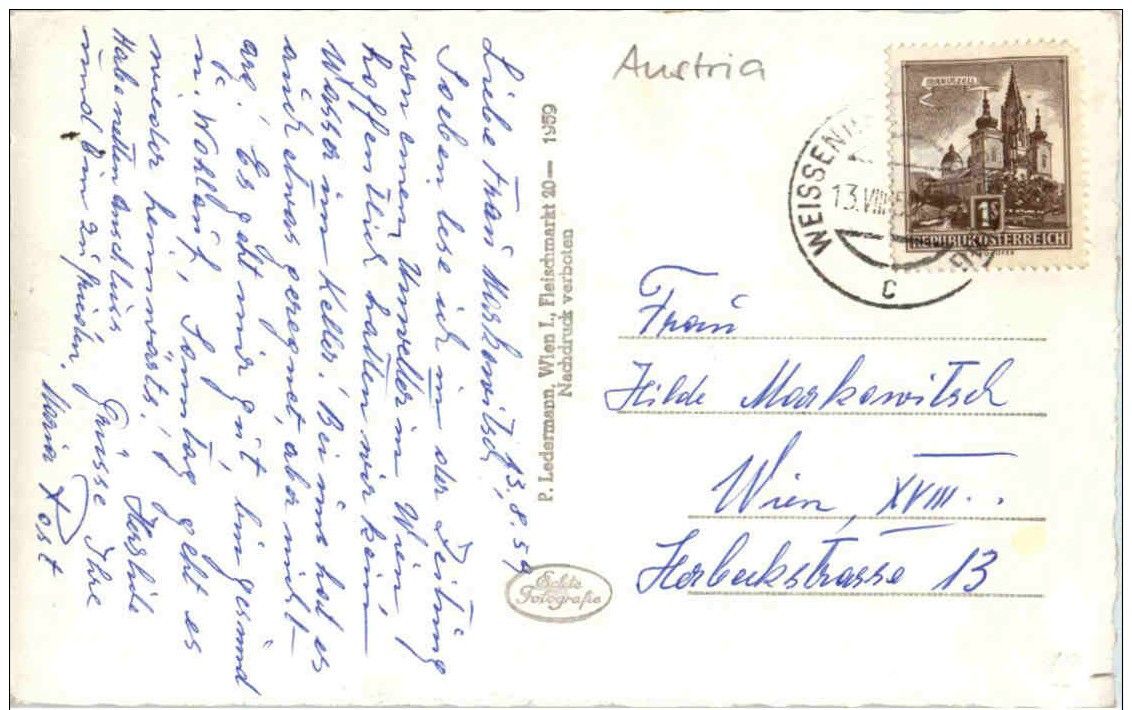 Austria
MARIAZELL
1S
REPUBLIK ÖSTERREICH
WEISSEN
13.VIII.5
C
13.8.59
Liebe Frau Markowitsch
Soeben lese ich in der Zeitung
von einem Unwetter in Wien,
hoffentlich hatten wir kein
Wasser im Keller! Bei uns hat es
auch etwas geregnet, aber nicht
arg. Es geht mir gut, bin gesund
u. Wohlauf, Sonntag geht es
wieder heimwärts!
Habe nettem anschluss Herzliche
und bin zufrieden. Grüsse Ihre
Maria Post
P. Ledermann, Wien I., Fleischmarkt 20— 1959
Nachdruck verboten
Echte
Fotografie
Frau
Hilde Markowitsch
Wien, XVIII..
Herbeckstrasse 13